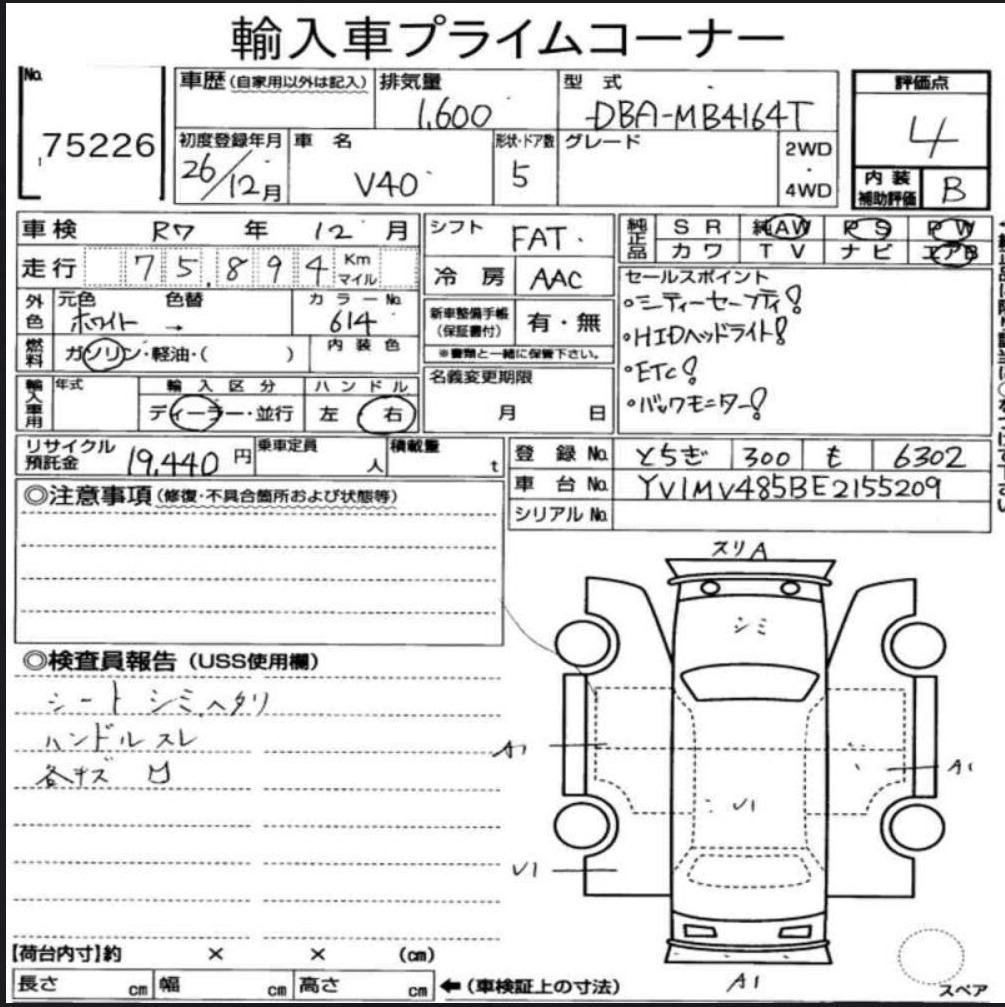 輸入車プライムコーナー
No. 75226
車歴(自家用以外は記入)
排気量 1,600
型式 DBA-MB4164T
評価点 4
初度登録年月 26/12月
車名 V40
形状・ドア数 5
グレード
2WD
・
4WD
内装補助評価 B
車検 R7年 12月
走行 75,894 Km マイル
外色 元色 ホワイト → 色替
カラーNo. 614
燃料 ガソリン・軽油・( )
内装色
シフト FAT
冷房 AAC
新車整備手帳(保証書付) 有・無
※書類と一緒に保管下さい。
純正品 SR 純AW PS PW
カワ TV ナビ エアB
セールスポイント
・シティーセーフティ!
・HIDヘッドライト!
・ETC!
・バックモニター!
輸入車用 年式
輸入区分 ディーラー・並行
ハンドル 左 右
名義変更期限 月 日
リサイクル預託金 19,440円
乗車定員 人
積載量 t
登録No. とちぎ 300 も 6302
車台No. YV1MV485BE2155209
シリアルNo.
◎注意事項(修復・不具合箇所および状態等)
◎検査員報告(USS使用欄)
シート シミ、ヘタリ
ハンドル スレ
各キズ 凹
スリA
シミ
A1
A1
U1
U1
A1
スペア
【荷台内寸】約 × × (cm)
長さ cm 幅 cm 高さ cm ←(車検証上の寸法)